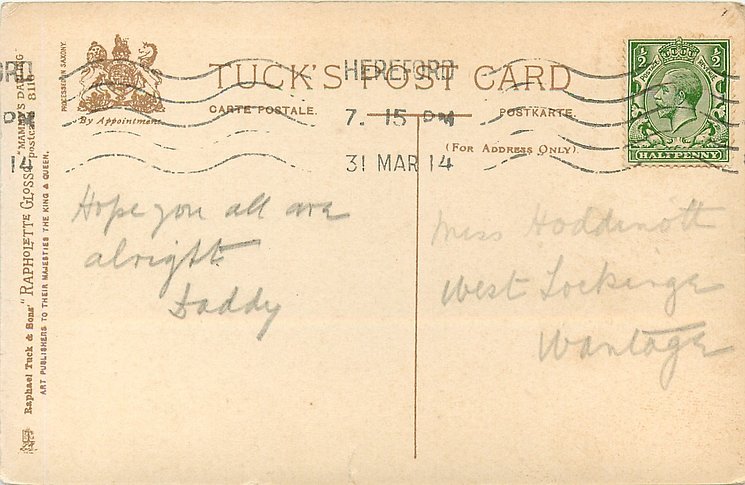 TUCK'S POST CARD
CARTE POSTALE.
POSTKARTE.
(FOR ADDRESS ONLY).
By Appointment
PROCESSED IN SAXONY.
Raphael Tuck & Sons' "RAPHOLETTE GLOSSO" postcard 8116
"MAMMA'S DARLING"
ART PUBLISHERS TO THEIR MAJESTIES THE KING & QUEEN.
HEREFORD
7. 15 PM
31 MAR 14
ORD
PM
14
1/2 1/2
POSTAGE REVENUE
HALFPENNY
Hope you all are
alright
Daddy
Miss Hoddinott
West Lockinge
Wantage